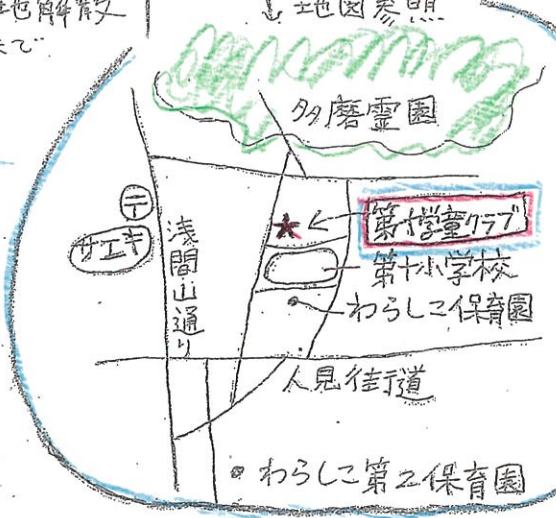 地解散
まで
↓地図参照
多磨霊園
〒
サエキ
浅間山通り
第十学童クラブ
第十小学校
わらしこ保育園
人見街道
わらしこ第2保育園